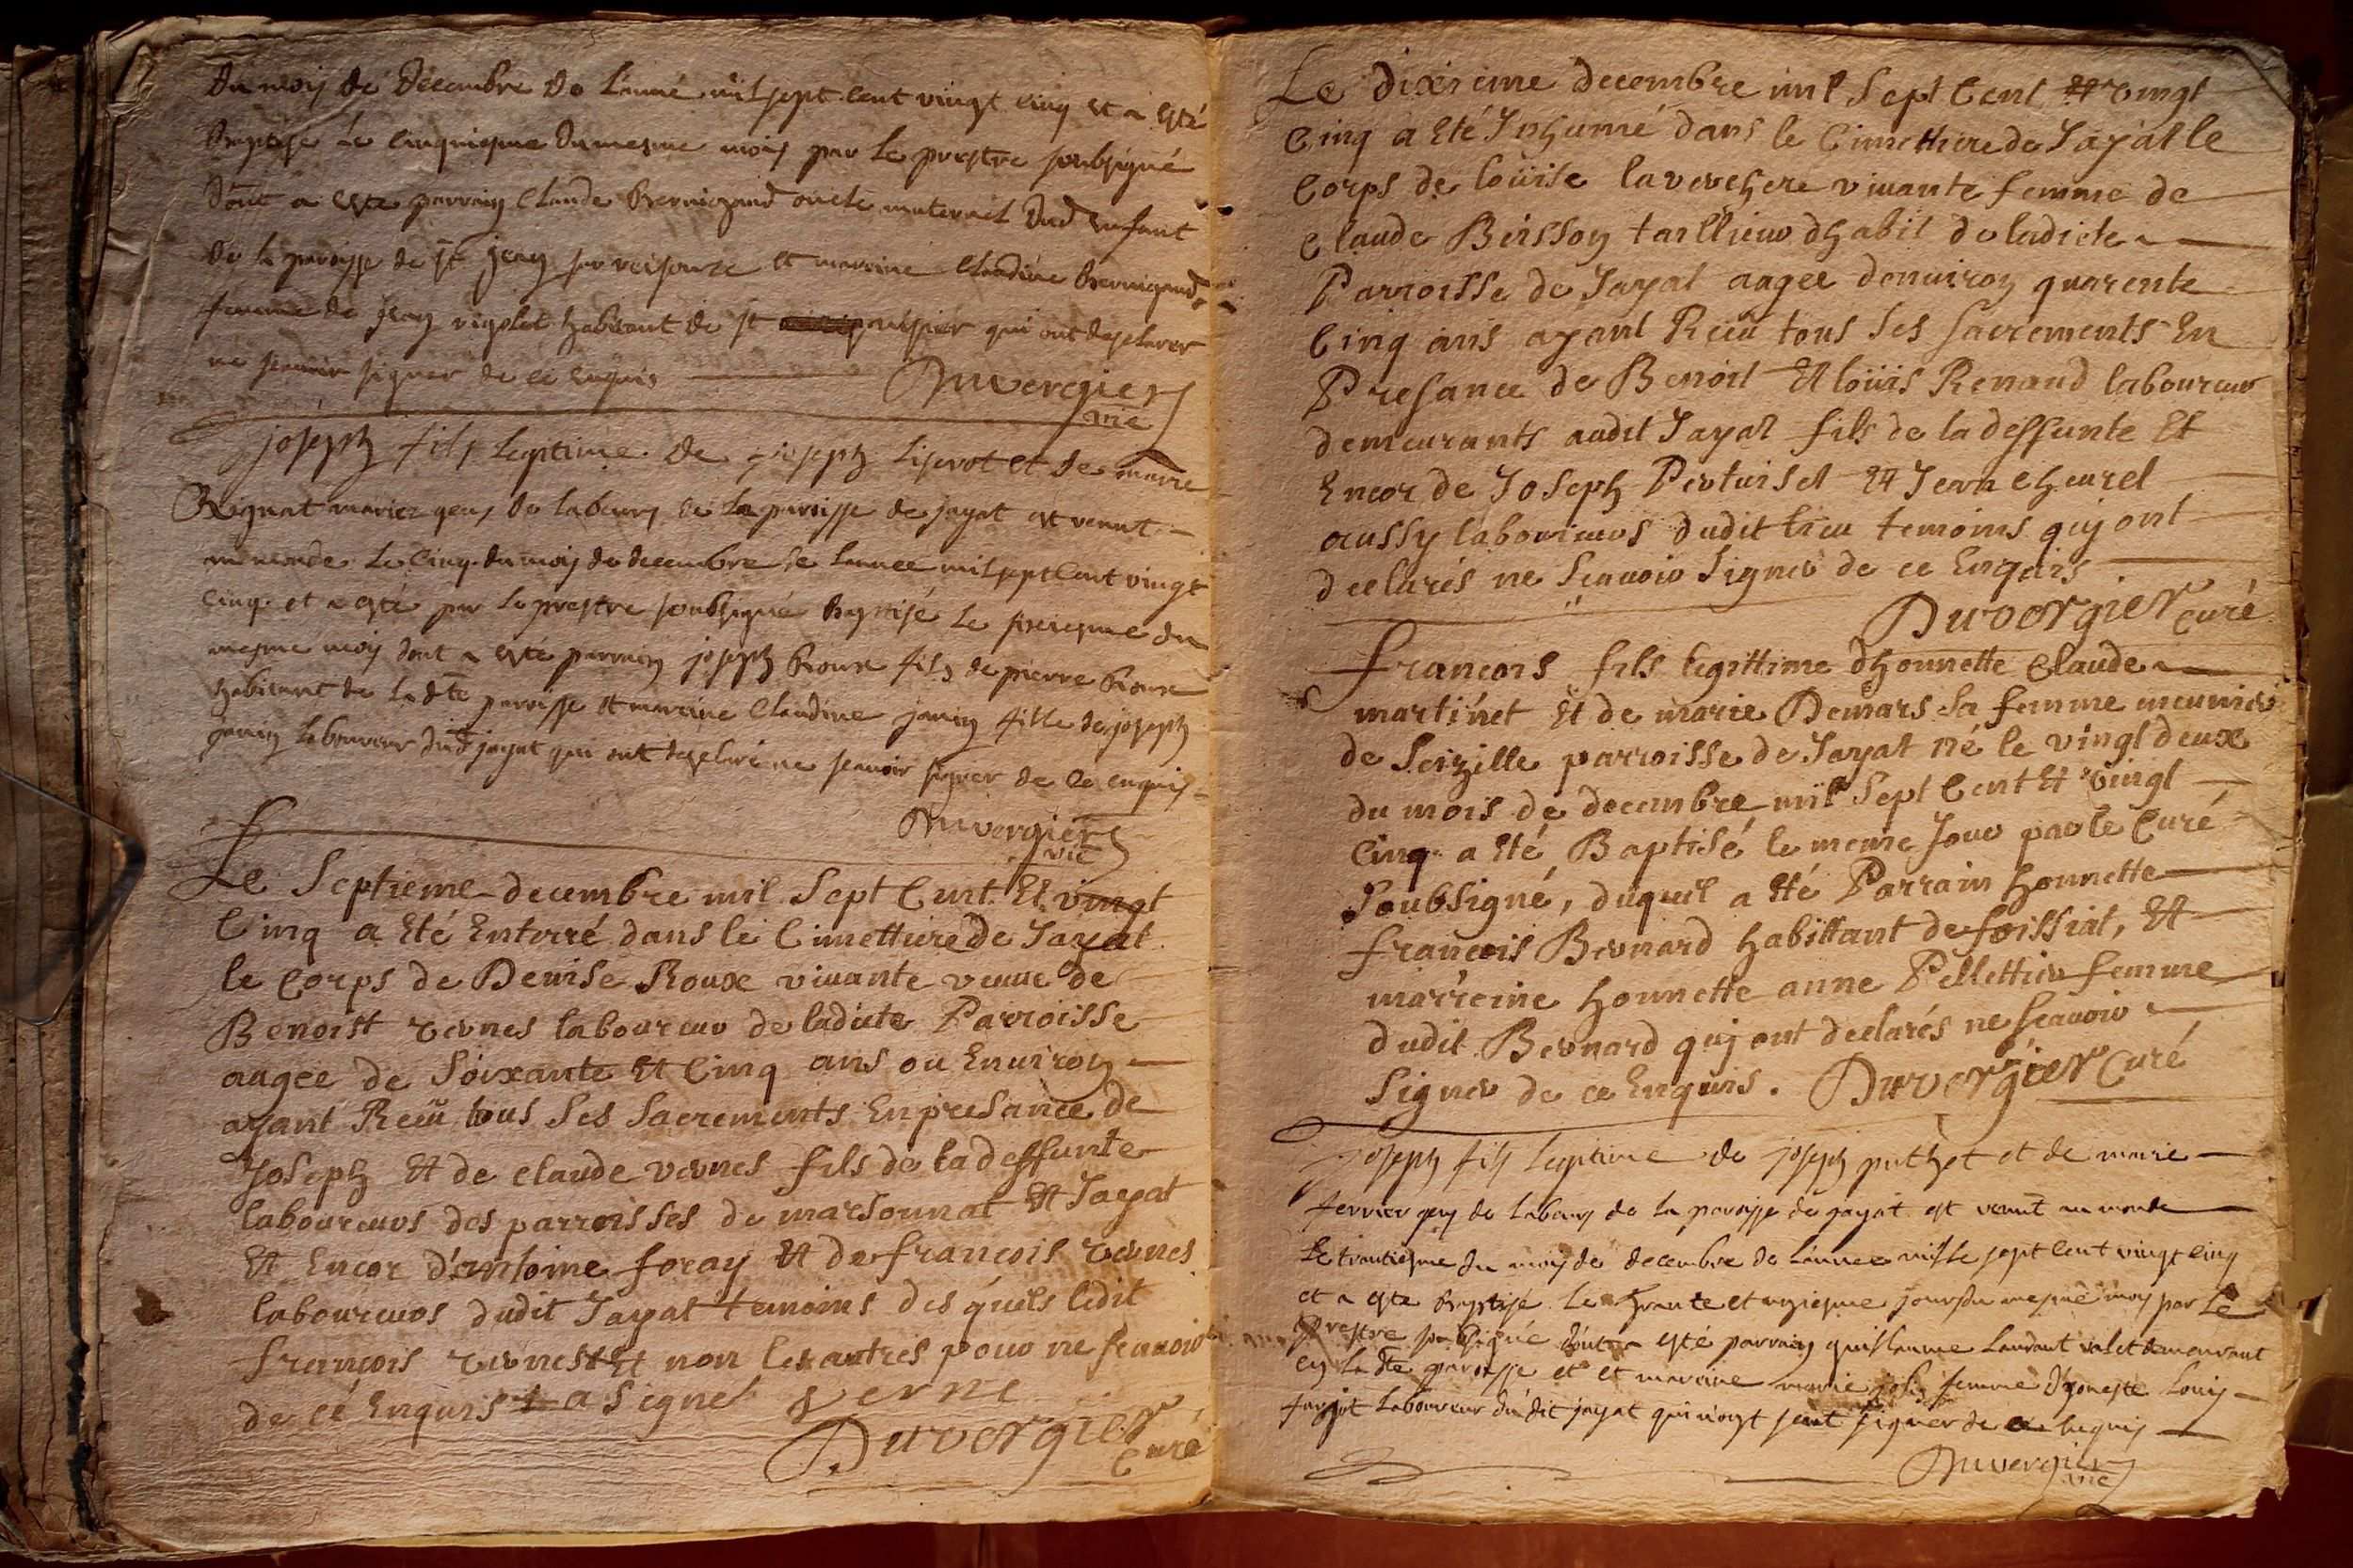 Du mois de Decembre De L'anné mil sept cent vingt cinq et a esté
Baptisé Le cinquiesme Dumesme mois par Le prestre soubsigné
Dont a este parrain Claude Bernigaud oncle maternel Dud enfant
De la paroisse de st jean sur reisouze et maraine Claudine Bernigaud
femme de jean rigolet habitant de st qui ont desclarer
ne scavoir signer de ce enquis Duvergier
vic
joseph fils Legitime De joseph Liserot et de marie
Rignat mariez gens De labeurs de La paroisse de jayat est venut
au monde Le Cinq du mois de decembre de lannee mil sept Cent vingt
Cinq et a esté par Le prestre soubsigné Baptisé Le sixiesme du
mesme mois dont a esté parrain joseph Roux fils de pierre Roux
habitant de La dte paroisse et maraine Claudine janin fille de joseph
janin Laboureur dud jayat qui ont desclaré ne scavoir signer de Ce enquis
Duvergier
vic
Le Septieme decembre mil Sept Cent Et vingt
Cinq a Eté Enterré dans le Cimettiere de Jayat
le Corps de Denise Roux viuante veuue de
Benoist vernes laboureur de ladicte Parroisse
augee de Soixante Et Cinq ans ou Enuiron
ayant Receü tous Ses Sacrements Enpresance de
Joseph Et de claude vernes fils de la deffunte
laboureurs des parroisses de marsonnat Et Jayat
Et Encor d'antoine foray Et de francois vernes
laboureurs dudit Jayat temoins desquels ledit
francois vernes Et non les autres pour ne scauoir
de ce Enquis a Signé verne
Duvergier
Curé
Le dixieme decembre mil Sept Cent Et vingt
Cinq a Eté Inhumé dans le Cimettiere de Jayat le
Corps de loüise lavevehere viuante femme de
Claude Buisson tailleur dhabit de ladicte
Parroisse de Jayat augee denuiron quarente
Cinq ans ayant Receü tous Ses Sacrements En
Presance de Benoit Et loüis Renaud laboureur
demeurants audit Jayat fils de la deffunte Et
Encor de Joseph Pertuiset Et Jean cheurel
aussy laboureurs dudit lieu temoins quj ont
declarés ne Scauoir Signer de ce Enquis
Duvergier curé
francois fils legittime dhonnette Claude
martinet Et de marie Demars sa femme meunier
de Seizille parroisse de Jayat né le vingt deux
du mois de decembre mil Sept Cent Et vingt
Cinq a Eté Baptisé le meme Jour par le Curé
Soubsigné, duquel a Eté Parrain honnette
francois Bernard habittant de foissiat, Et
marreine honnette anne Pellettier femme
dudit Bernard quj ont declarés ne scauoir
Signer de ce Enquis. Duvergier Curé
joseph fils Legitime de joseph puthet et de marie
ferrier gens de Labeurs de la paroisse de jayat est venut au monde
Le trantiesme du mois de decembre de L'annee mille sept Cent vingt cinq
et a este Baptisé Le trante et uniesme jour du mesme mois par Le
prestre soubsigné dont a esté parrain guillaume Landaut valet demeurant
en La dte paroisse et et maraine marie joly femme d'honeste Louis
farjot Laboureur du dit jayat qui n'ont sceut signer de ce enquis
Duvergier
vic